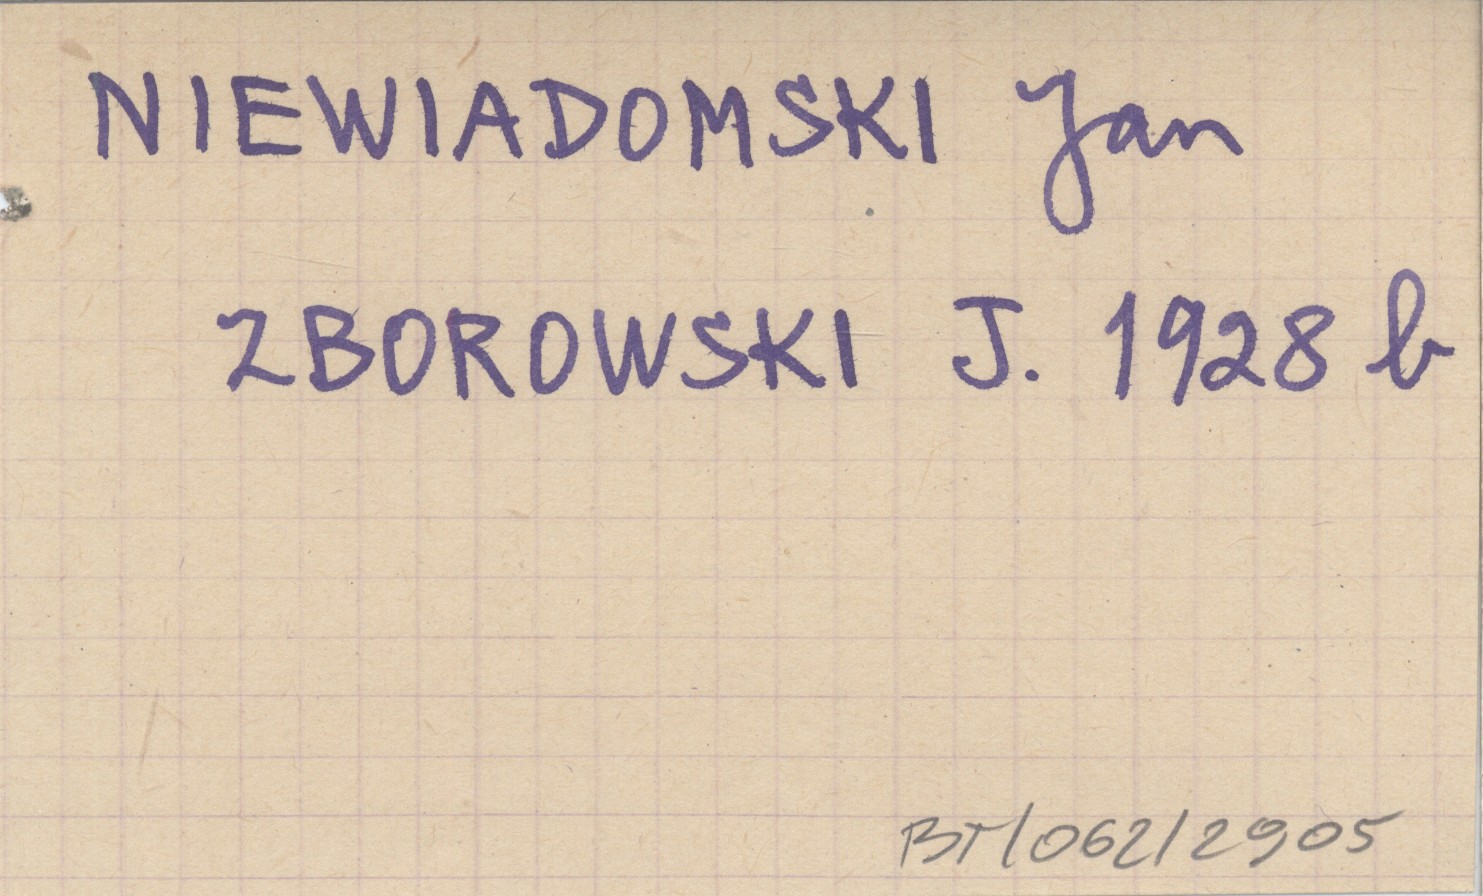 NIEWIADOMSKI Jan
ZBOROWSKI J. 1928 b
BT/062/2905